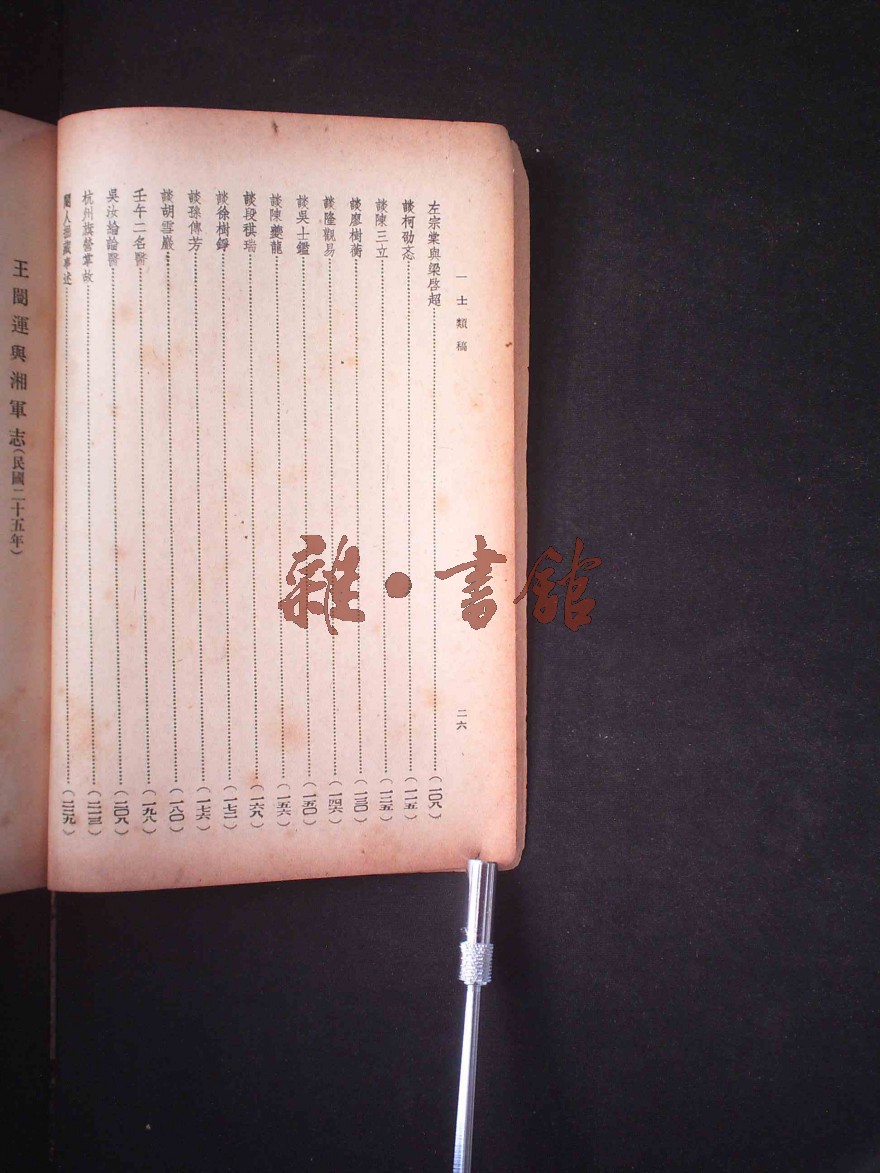 一士類稿
二六
左宗棠與梁啓超(一〇八)
談柯劭忞(一一五)
談陳三立(一二五)
談廖樹蘅(一三〇)
談隆觀易(一四六)
談吳士鑑(一五〇)
談陳夔龍(一五六)
談段祺瑞(一六八)
談徐樹錚(一七二)
談孫傳芳(一七六)
談胡雪巖(一八〇)
壬午二名醫(一九八)
吳汝綸論醫(二〇八)
杭州旗營掌故(二一三)
王闓運與湘軍志(民國二十五年)
雜·書館